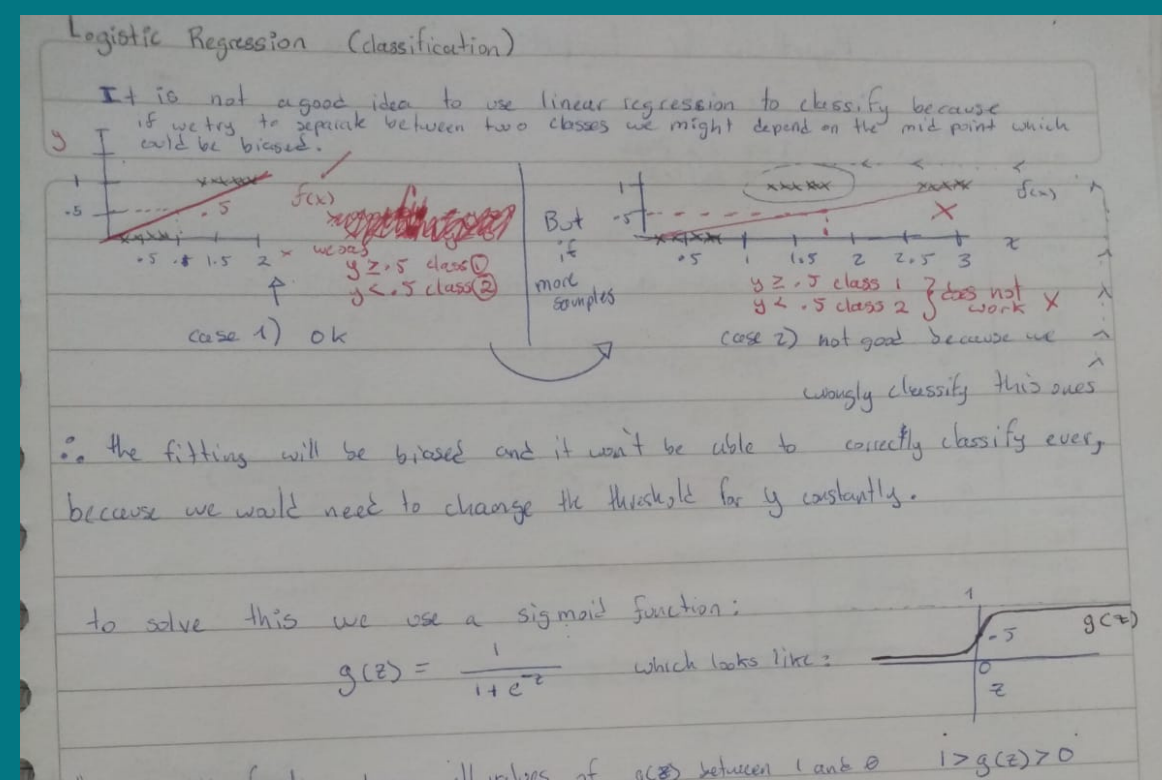 Logistic Regression (classification)
It is not a good idea to use linear regression to classify because
if we try to separate between two classes we might depend on the mid point which
could be biased.
y
1
.5
.5
f(x)
.5
1.5
2
x
we say
y ≥ .5 class 1
y < .5 class 2
case 1) ok
But
if
more
samples
1
.5
f(x)
.5
1
1.5
2
2.5
3
x
y ≥ .5 class 1
y < .5 class 2 } does not
work x
case 2) not good because we
wrongly classify this ones
∴ the fitting will be biased and it won't be able to correctly classify ever,
because we would need to change the threshold for y constantly.
to solve this we use a sigmoid function:
g(z) = 1 / 1 + e^-z which looks like:
1
.5
g(z)
0
z
all values of g(z) between 1 and 0 1 > g(z) > 0